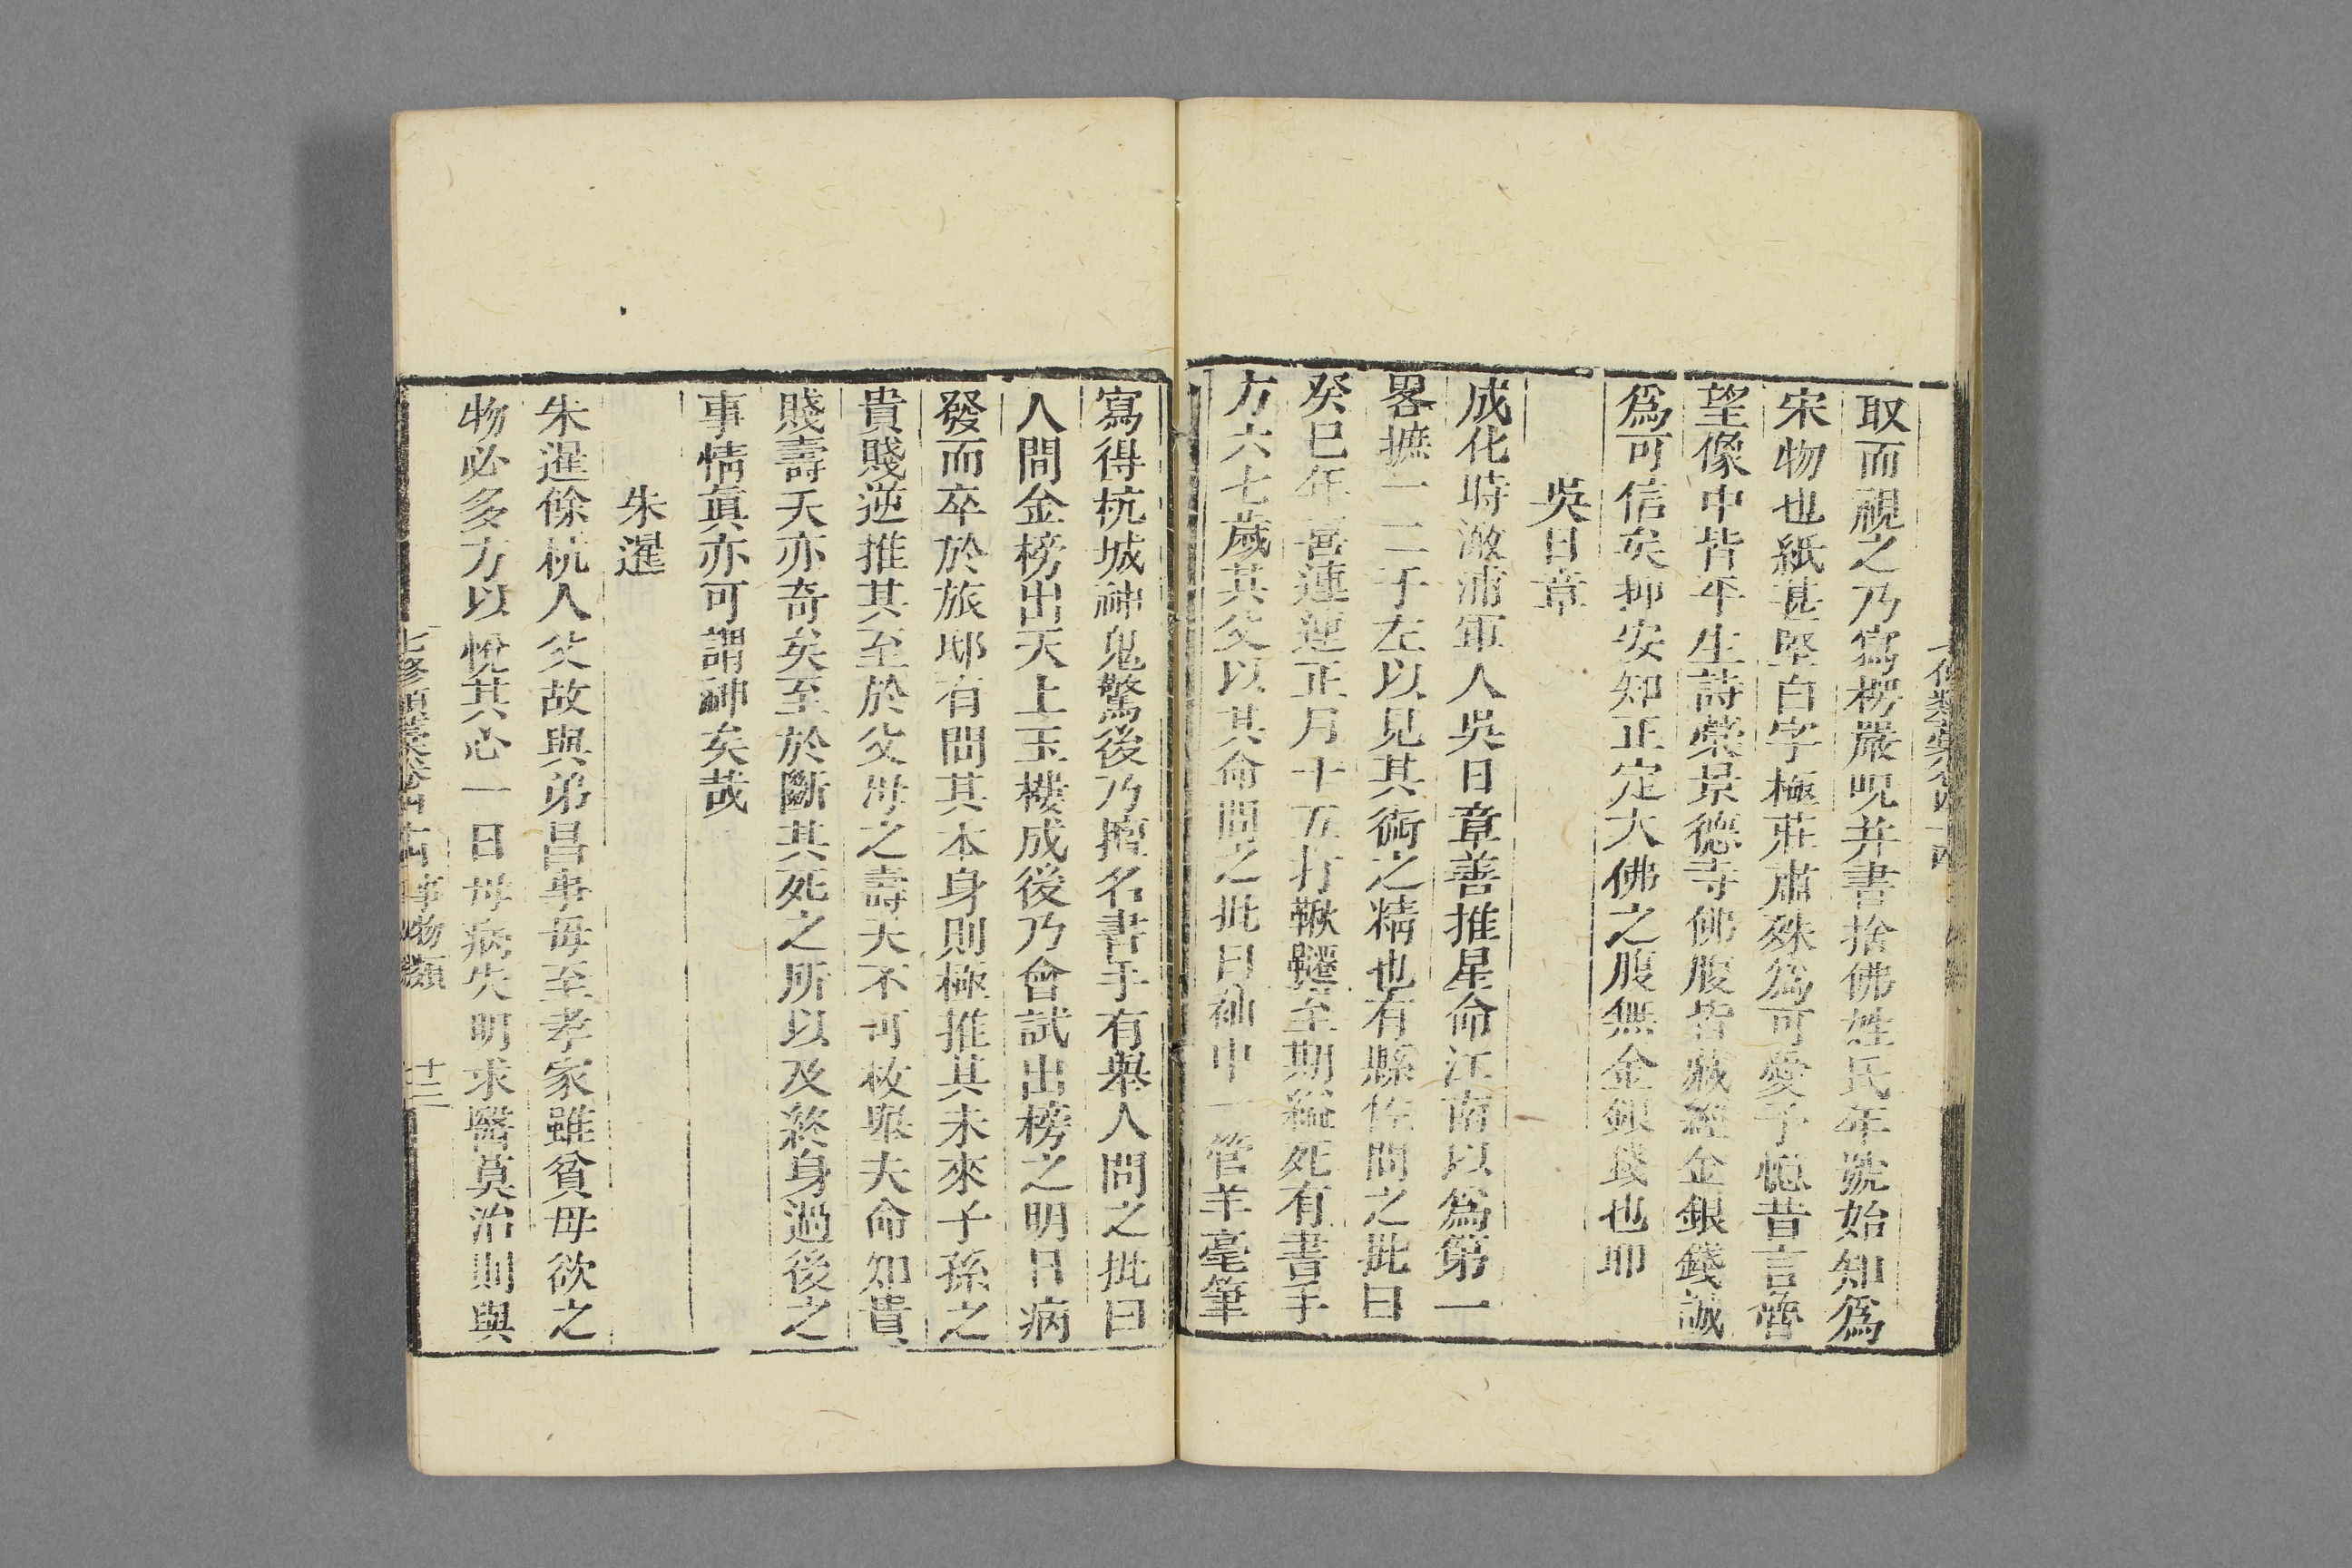 取而視之乃寫楞嚴呪并書捨佛姓氏年號始知爲
宋物也紙甚堅白字極莊肅殊爲可愛予憶昔言舊
望像中皆平生詩藁景德寺佛腹皆藏經金銀錢誠
爲可信矣抑安知正定大佛之腹無金銀錢也耶
吳日章
成化時澉浦軍人吳日章善推星命江南以爲第一
畧摭一二于左以見其術之精也有縣佐問之批曰
癸巳年喜連迎正月十五打鞦韆至期縊死有書手
方六七歲其父以其命問之批曰袖中一管羊毫筆
寫得杭城神鬼驚後乃擅名書手有舉人問之批曰
人間金榜出天上玉樓成後乃會試出榜之明日病
發而卒於旅邸有問其本身則極推其未來子孫之
貴賤逆推其至於父母之壽夭不可枚舉夫命知貴
賤壽夭亦奇矣至於斷其死之所以及終身過後之
事情眞亦可謂神矣哉
朱暹
朱暹餘杭人父故與弟昌事母至孝家雖貧母欲之
物必多方以悅其心一日母病失明求醫莫治則與
七修類藁卷四十四 事物類 十三